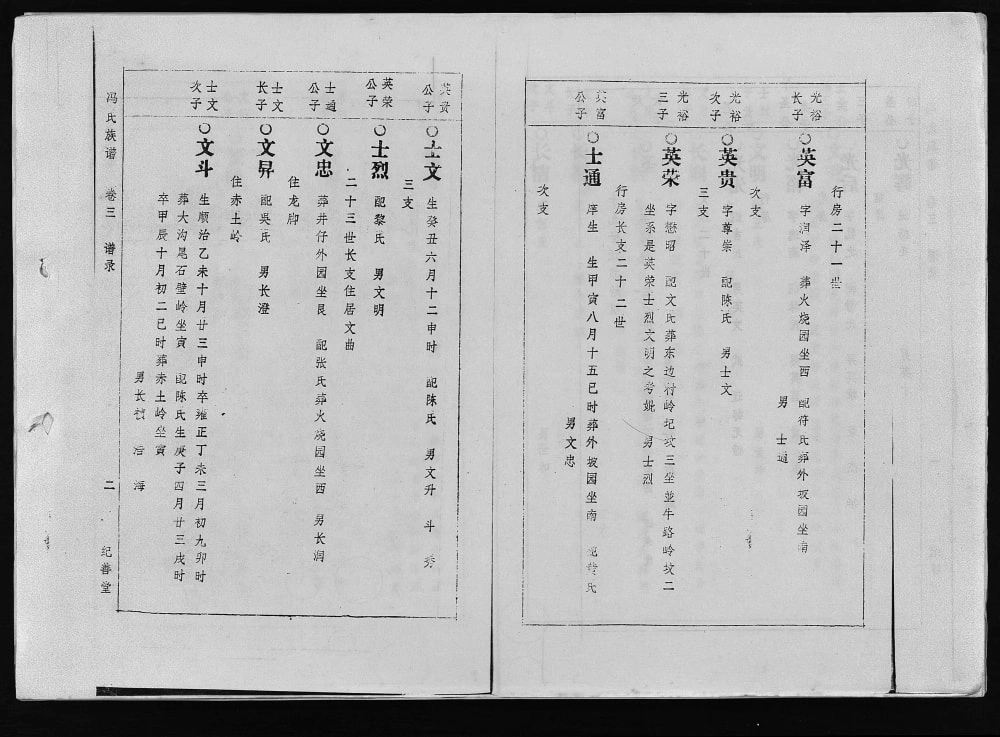 行房二十一世
光裕长子
○英富 字润泽 葬火烧园坐西 配符氏葬外坡园坐南
男 士通
次支
光裕次子
○英贵 字尊崇 配陈氏 男士文
三支
光裕三子
○英荣 字懋昭 配文氏葬东边村岭圮坟三坐並牛路岭坟二
坐系是英荣士烈文明之考妣 男士烈
行房长支二十二世
英富公子
○士通 庠生 生甲寅八月十五巳时葬外坡园坐南 氏
男文忠
次支
英贵公子
○士文 生癸丑六月十二申时 配陈氏 男文升 斗 秀
三支
英荣公子
○士烈 配黎氏 男文明
二十三世长支住居文曲
士通公子
○文忠 葬井仔外园坐艮 配张氏葬火烧园坐西 男长润
住龙脚
士文长子
○文昇 配吴氏 男长澄
住赤土岭
士文次子
○文斗 生顺治乙未十月廿三申时卒雍正丁未三月初九卯时
葬大沟尾石壁岭坐寅 配陈氏生庚子四月廿三戌时
卒甲辰十月初二巳时葬赤土岭坐寅
男长 浩 海
冯氏族谱 卷三 谱录 二 纪善堂